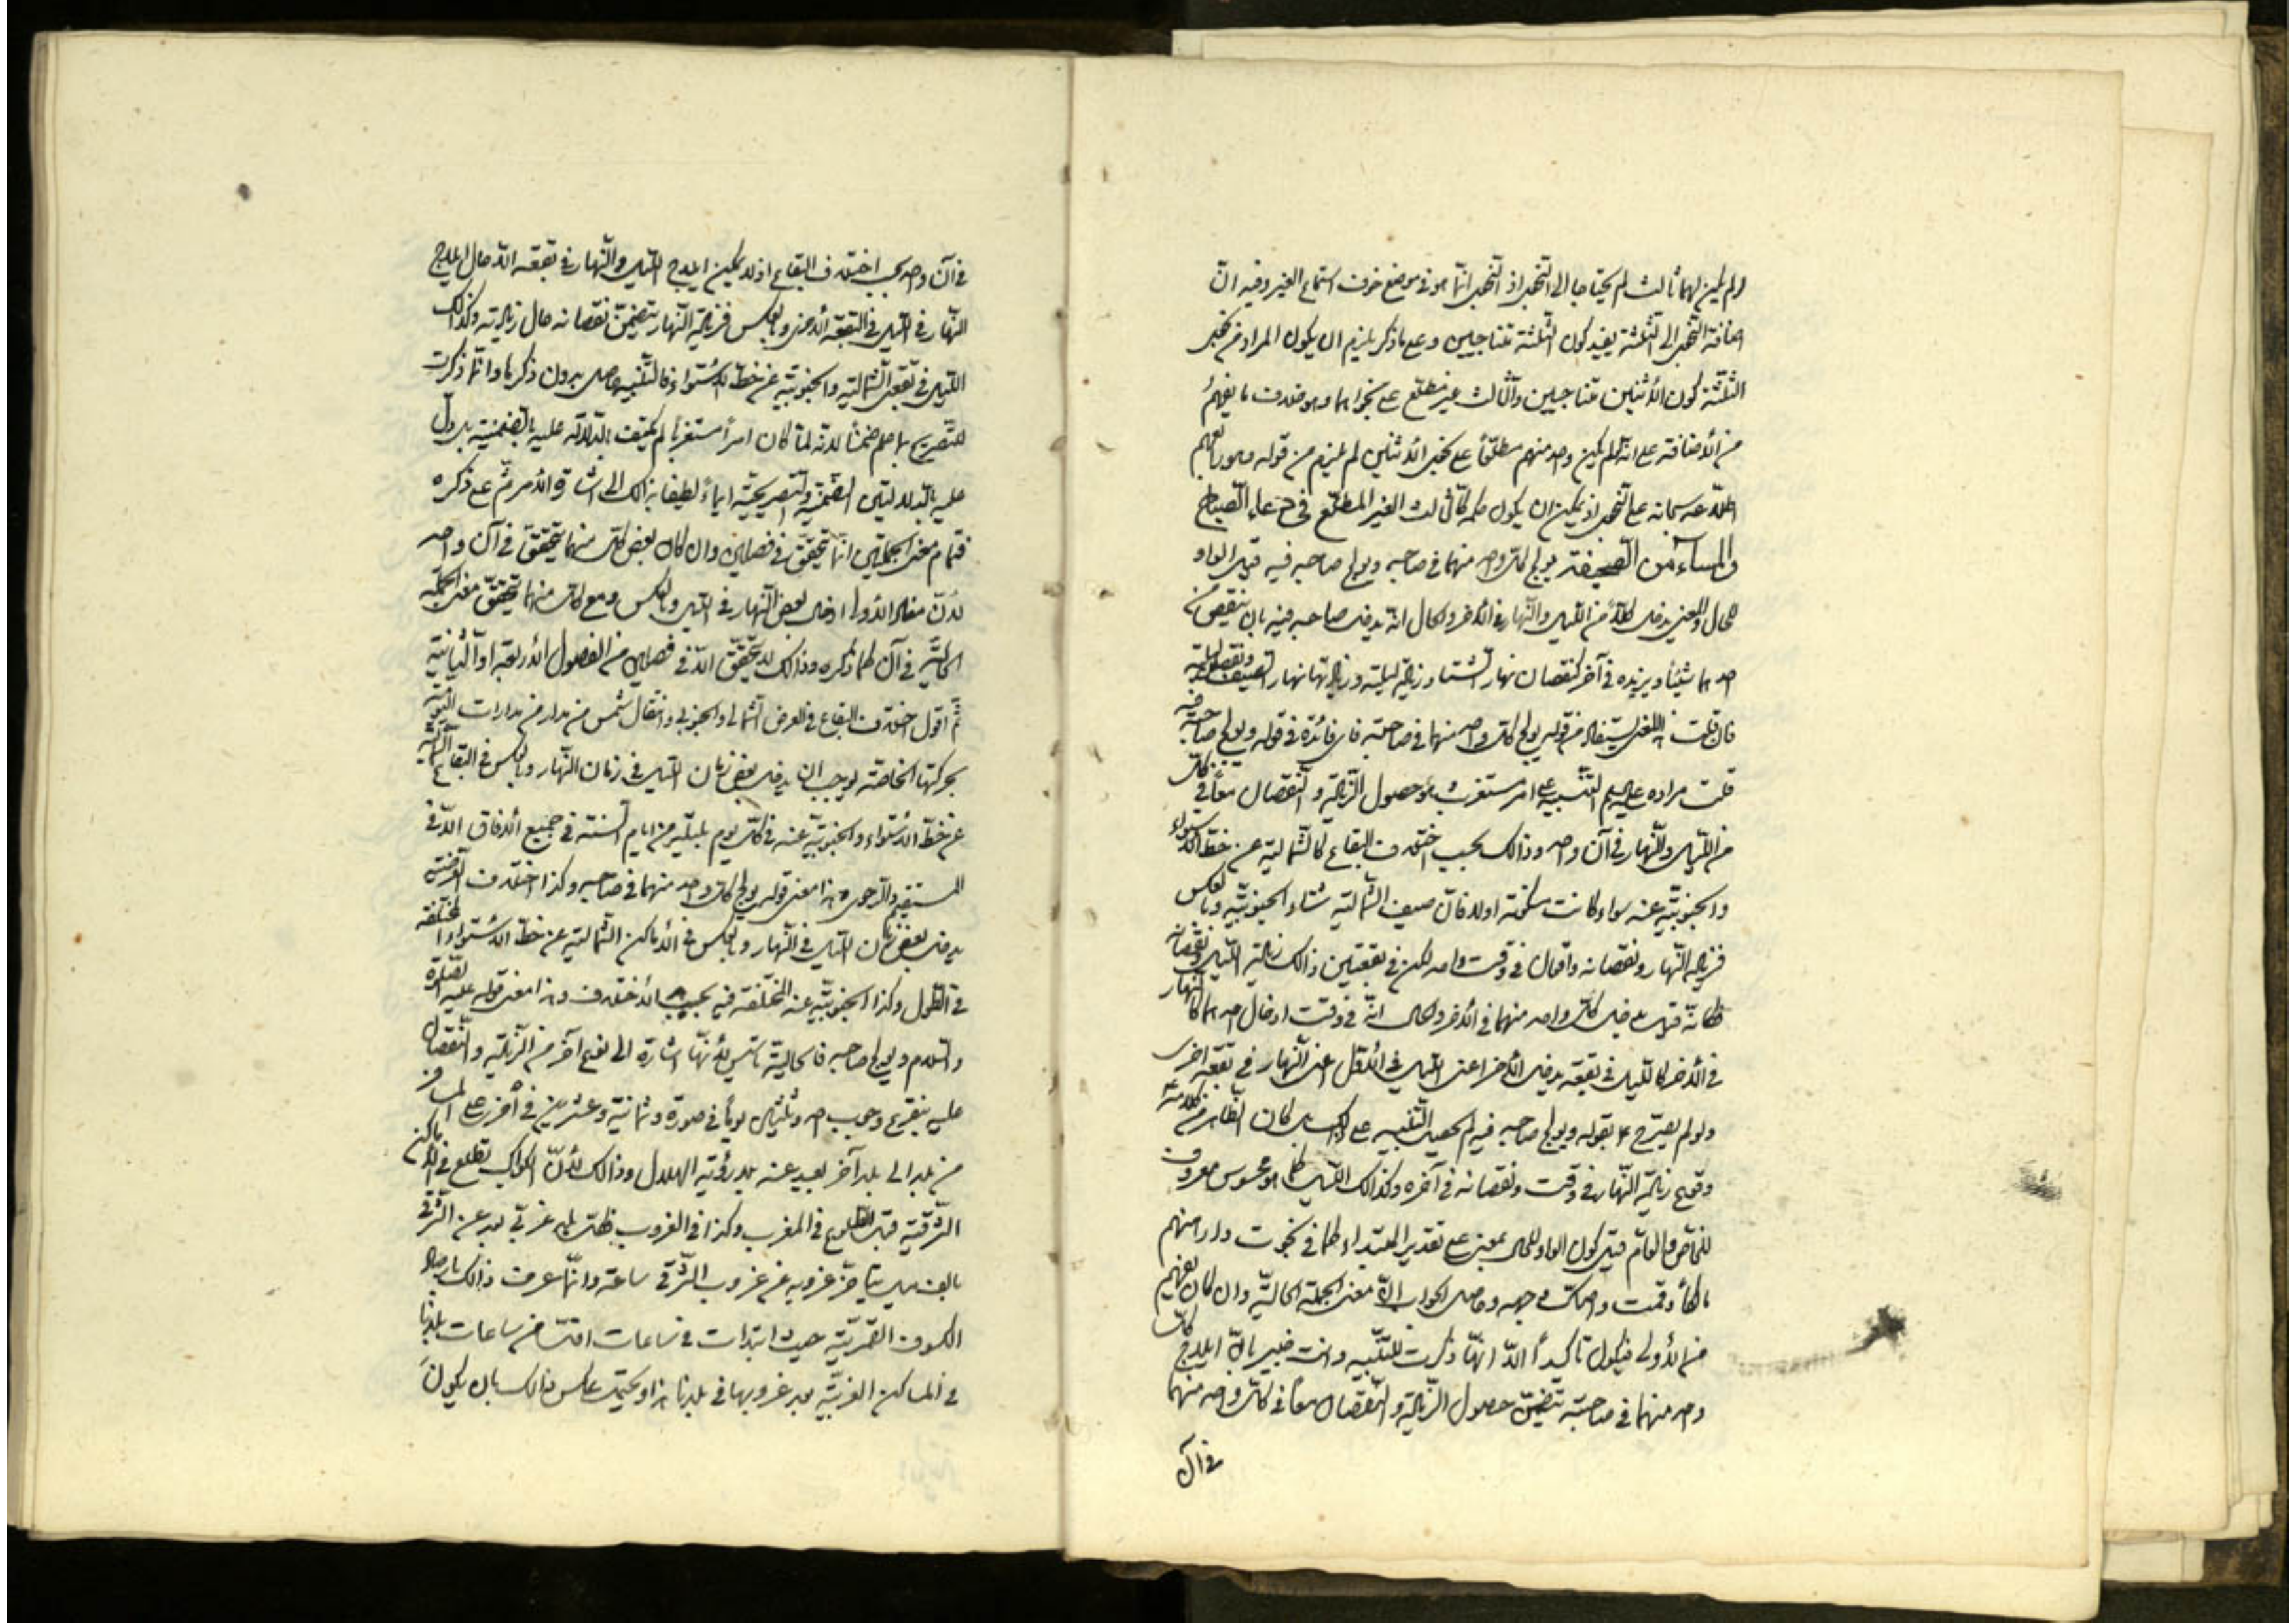 ولم يكن لهما ثالث لم يحتاجا الى النجوى اذ النجوى انما هو في موضع خوف استماع الغير وفيه انّ
اضافة النجوى الى الثلثة يفيد كون الثلثة متناجيين وعلى ما ذكر يلزم ان يكون المراد من نجوى
الثلثة كون الاثنين متناجيين والثالث غير مطلع على نجواهما وهو خلاف ما يفهم
من الاضافة على انه لو لم يكن واحد منهم مطلعاً على نجوى الاثنين لم يلزم من قوله وهو رابعهم
اطلاعه سبحانه على النجوى اذ يمكن ان يكون حكمه كالثالث الغير المطلع في دعاء الصباح
والمساء من الصحيفة يولج كل واحد منهما في صاحبه ويولج صاحبه فيه قيل الواو
للحال والمعنى يدخل كلاً من الليل والنهار في الاخر والحال انه يدخل صاحبه فيه بان ينقص من
احدهما شيئاً ويزيده في آخر كنقصان نهار الشتاء وزيادة ليلته وزيادة نهار الصيف ونقصان ليلته
فان قلت هذا المعنى يستفاد من قوله يولج كل واحد منهما في صاحبه فاي فائدة في قوله ويولج صاحبه فيه
قلت مراده عليه السلم التنبيه على امر مستغرب هو حصول الزيادة والنقصان معاً في كل
من الليل والنهار في آن واحد وذالك بحسب اختلاف البقاع كالشمالية عن خط الاستواء
والجنوبية عنه سواء كانت مسكونة اولا فان صيف الشمالية شتاء الجنوبية وبالعكس
فزيادة النهار ونقصانه واقعان في وقت واحد لكن في بقعتين وذالك زيادة الليل ونقصانه
فكانه قيل يدخل كل واحد منهما في الاخر والحال انه في وقت ادخال احدهما كالنهار
في الاخر كالليل في بقعة يدخل الاخر اعني الليل في الاول اعني النهار في بقعة اخرى
ولو لم يصرح بقوله ويولج صاحبه فيه لم يحصل التنبيه على ذالك بل كان الظاهر من كلامه
وقوع زيادة النهار في وقت ونقصانه في آخره وكذالك الليل كما هو محسوس معروف
للخاص والعام قيل كون الواو للحال بمعنى على تقدير المبتداء كما في نجوت وارهنهم
مالكاً وقمت واصكّ وجهه وحاصل الجواب ان معنى الجملة الحالية وان كان يفهم
من الاولى فيكون تاكيداً الا انها ذكرت للتنبيه وانت خبير بان ايلاج كل
واحد منهما في صاحبه يتضمن حصول الزيادة والنقصان معاً في كل واحد منهما
في آن
في آن واحد بحسب اختلاف البقاع اذ لا يمكن ايلاج الليل والنهار في بقعة الا حال ايلاج
النهار في الليل في البقعة الاخرى وبالعكس فزيادة النهار يتضمن نقصانه حال زيادته وكذالك
الليل في بقعتي الشمالية والجنوبية عن خط الاستواء فالتنبيه حاصل بدون ذكرها وانما ذكرت
للتصريح بما علم ضمناً لانه لما كان امراً مستغرباً لم يكتف بالدلالة عليه بالتضمنية بل دل
عليه بالدلالتين الضمنية والتصريحية ايماءً لطيفاً بذالك الى اشارة الامر ثم على ذكره
فتمام معنى الجملتين انما يتحقق في فصلين وان كان بعض كل منهما يتحقق في آن واحد
لان مفاد الاولى ادخال بعض النهار في الليل وبالعكس ومع كل منهما يتحقق معنى الجملة
الحالية في آن كما ذكره وذالك لا يتحقق الا في فصلين من الفصول الاربعة او الثمانية
ثم اقول اختلاف البقاع في العرض الشمالي والجنوبي وانتقال الشمس من مدار من مدارات اليومية
بحركتها الخاصة يوجب ان يدخل بعض زمان الليل في زمان النهار وبالعكس في البقاع الشمالية
عن خط الاستواء والجنوبية عنه في كل يوم بليلته من ايام السنة في جميع الافاق الا في
المستقيم والرحوي هذا معنى قوله يولج كل واحد منهما في صاحبه وكذا اختلاف العرض
يدخل بعض زمان الليل في النهار وبالعكس في الاماكن الشمالية عن خط الاستواء المختلفة
في الطول وكذا الجنوبية عنه المختلفة فيه بحسب الاختلاف وهذا معنى قوله عليه الصلوة
والسلام ويولج صاحبه فالحالية تاسيس لانها اشارة الى نوع آخر من الزيادة والنقصان
عليه يتفرع وجوب احد وثلثين يوماً في صورة وثمانية وعشرين في اخرى على المسافر
من بلد الى بلد آخر بعيد عنه بعد رؤية الهلال وذالك لان الكواكب تطلع في الاماكن
الشرقية قبل الطلوع في المغرب وكذا في الغروب فكل بلد غربي بعد عن الشرقي
بالف ميل يتاخر غروبه عن غروب الشرقي ساعة وانما عرف ذالك بارصاد
الكسوف القمرية حيث ابتدات في ساعات اقل من ساعات بلدنا
في المساكن الغربية بعد غروبها في بلدنا هذا ويحتمل عكس ذالك بان يكون